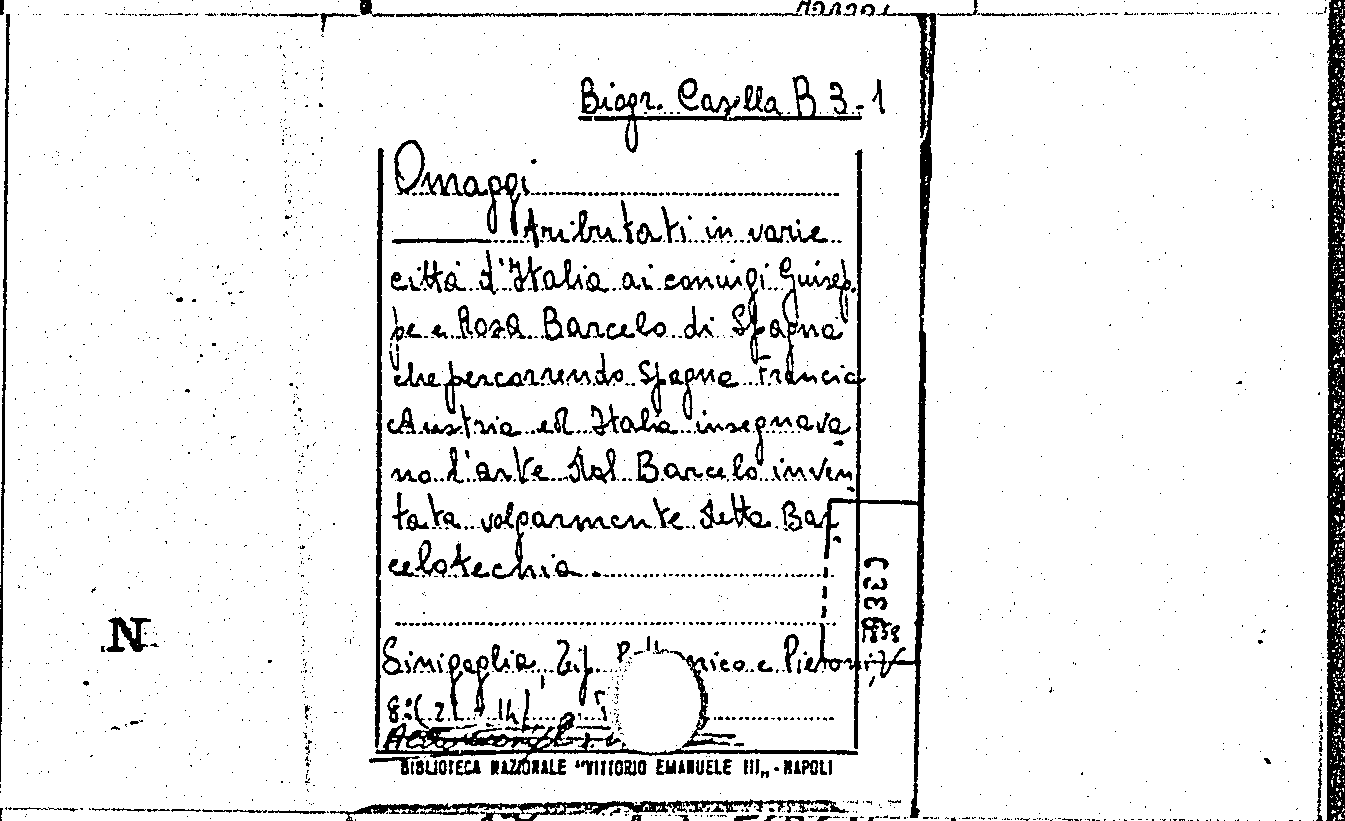 Biogr. Casella B 3-1
Omaggi
tributati in varie
città d'Italia ai coniugi Guisep
pe e Rosa Barcelo di Spagna
che percorrendo Spagna Francia
Austria ed Italia insegnava
no l'arte dal Barcelo inven
tata volgarmente detta Bar
celotechia.
Sinigaglia, Tip. e Pieroni,
1838
8:(2) - 14
BIBLIOTECA NAZIONALE "VITTORIO EMANUELE III„ - NAPOLI
N